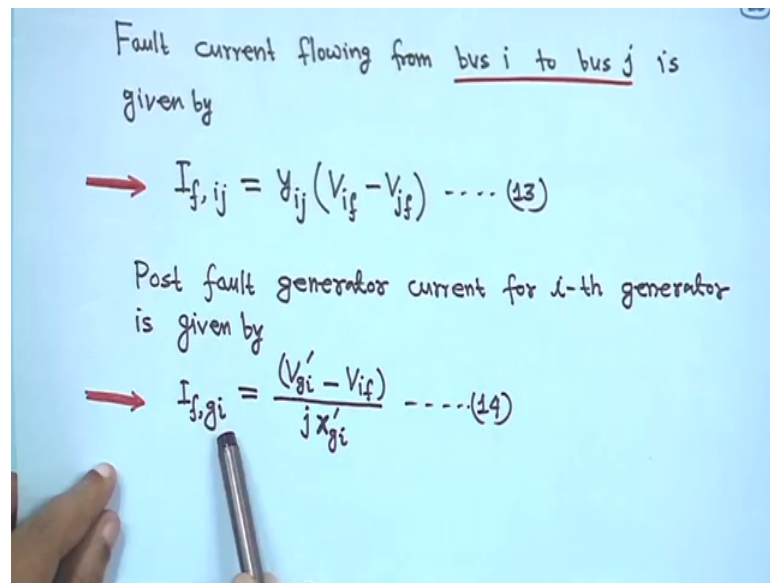 Fault current flowing from bus i to bus j is
given by
→ I_f,ij = y_ij (V_if – V_jf) ---- (13)
Post fault generator current for i-th generator
is given by
→ I_f,gi = (V'_gi – V_if) / j x'_gi -----(14)